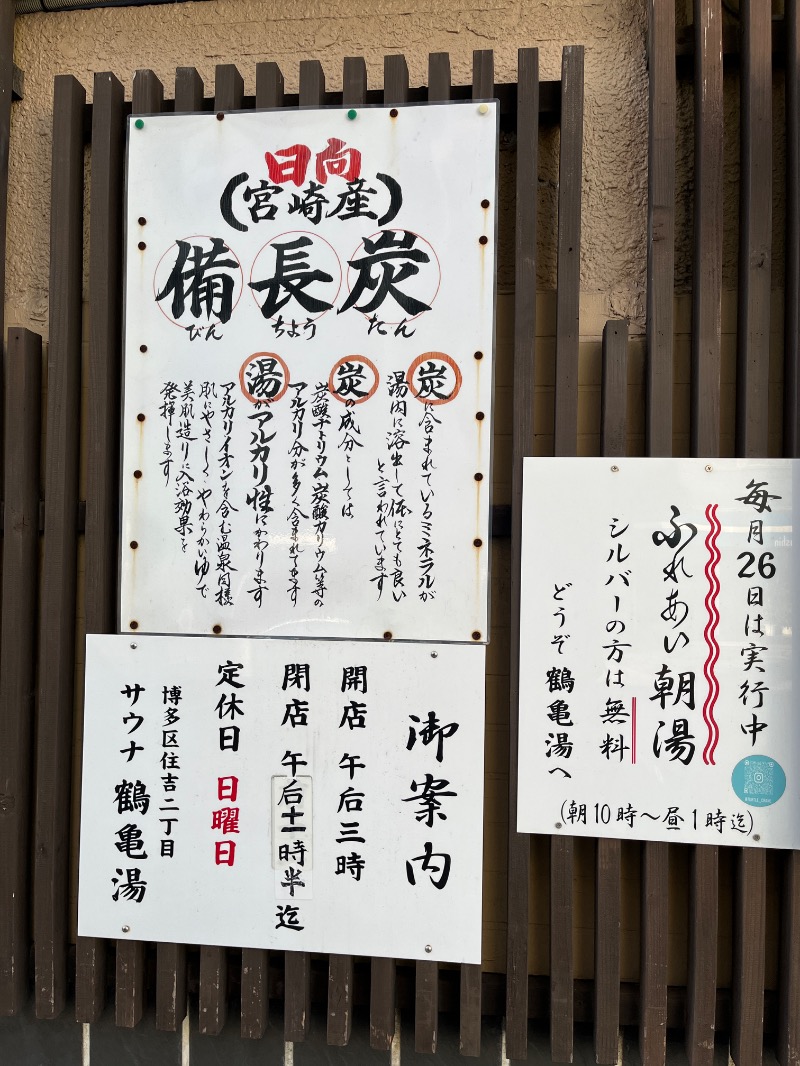 日向
(宮崎産)
備長炭
びん ちょう たん
炭に含まれているミネラルが
湯内に溶出して体にとても良い
と言われています
炭の成分としては、
炭酸ナトリウム炭酸カリウム等の
アルカリ分が多く含まれてます
湯がアルカリ性にかわります
アルカリイオンを含む温泉同様
肌にやさしく、やわらかいゆで
美肌造りに入浴効果を
発揮します
御案内
開店 午后三時
閉店 午后十一時半迄
定休日 日曜日
博多区住吉二丁目
サウナ 鶴亀湯
毎月26日は実行中
ふれあい朝湯
シルバーの方は無料
どうぞ鶴亀湯へ
(朝10時〜昼1時迄)